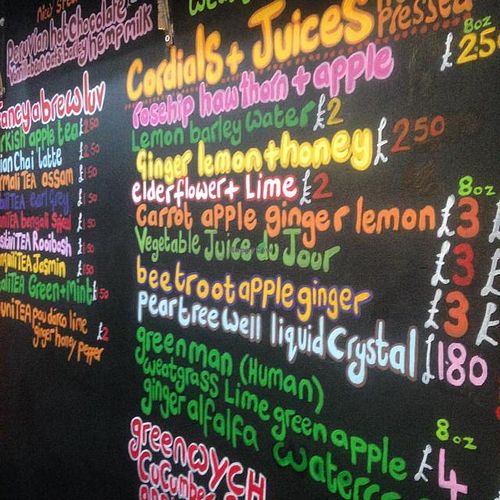 Peruvian hot Chocolate
hemp milk
ancy a brew luv
rkish apple tea 2.50
ian Chai latte £2.50
mali TEA assam £1.50
TEA earl Grey £1.50
TEA bengali
TEA Rooibosh £1.50
TEA Jasmin £1.50
TEA Green + Mint £1.50
uni TEA lime £2
ginger honey pepper
Cordials + Juices Pressed
8oz
rosehip hawthorn + apple £250
Lemon barley water £2
ginger lemon + honey £250
elderflower + Lime £2
8oz
Carrot apple ginger lemon £3
Vegetable Juice du Jour £3
beetroot apple ginger £3
peartree well liquid Crystal £180
green man (Human)
weatgrass Lime green apple
8oz
ginger alfalfa watercr £4
greenwych
Cucumber